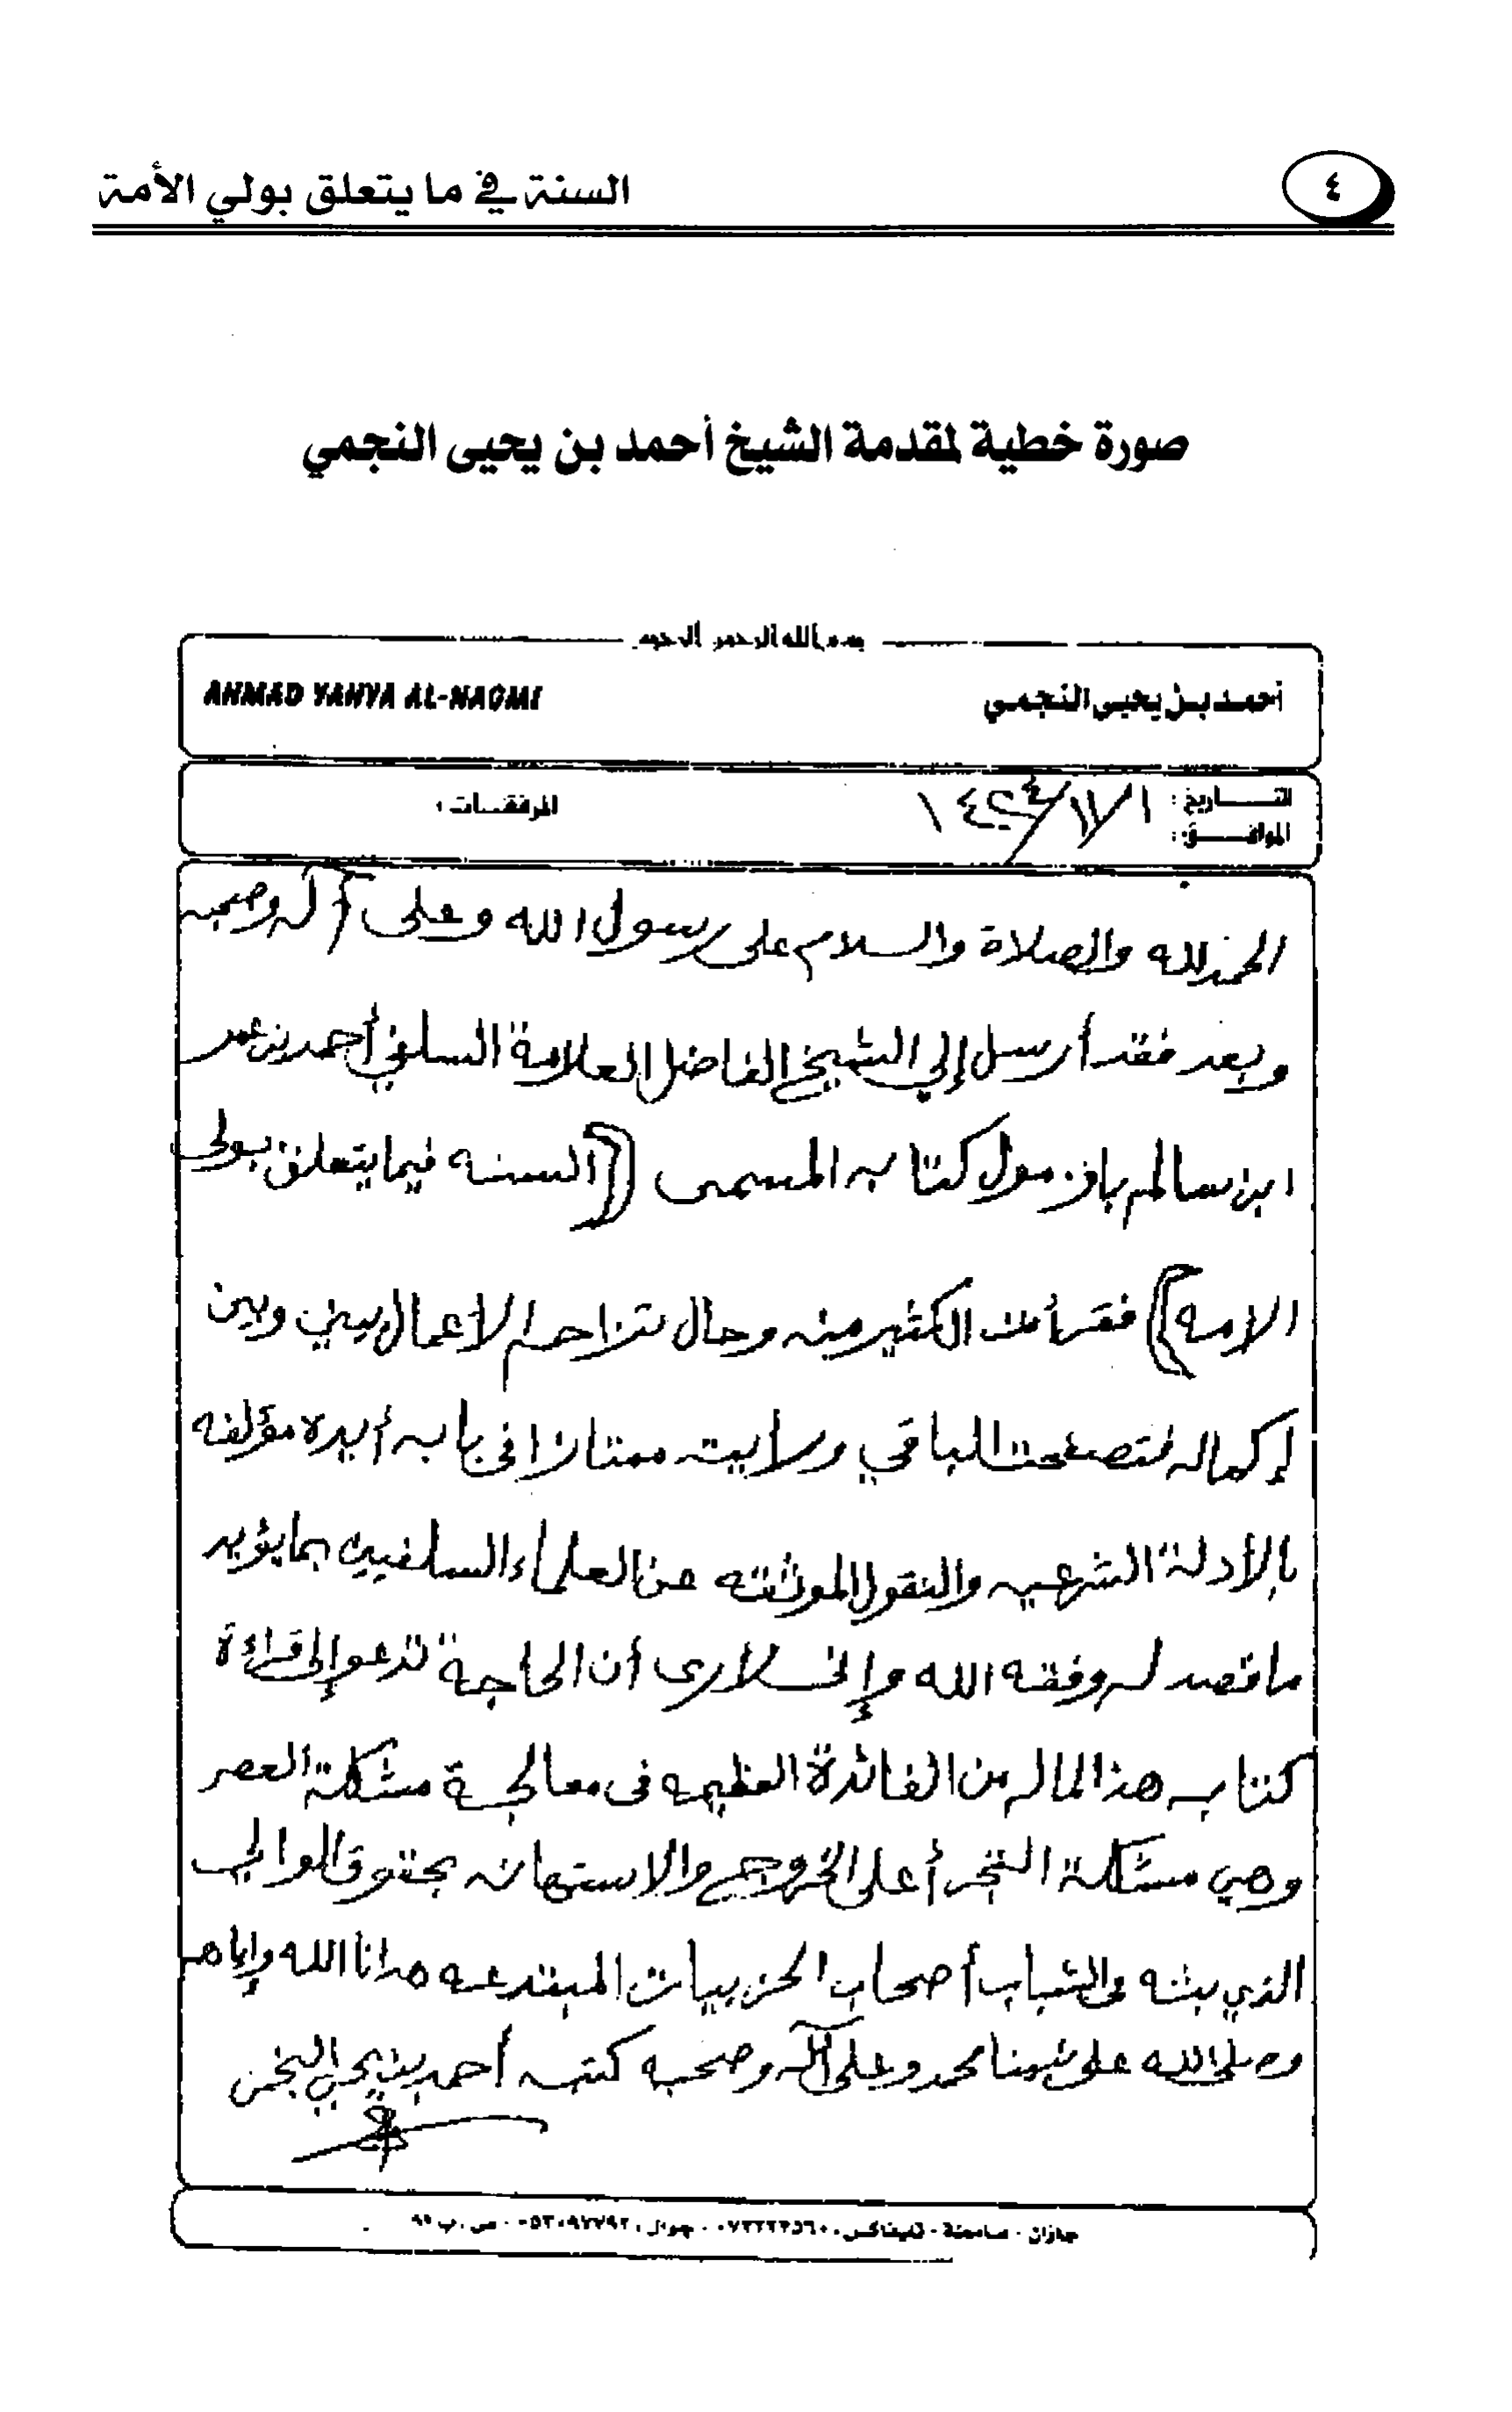 ٤
السنة في ما يتعلق بولي الأمة
صورة خطية لمقدمة الشيخ أحمد بن يحيى النجمي
بسم الله الرحمن الرحيم
أحمد بن يحيى النجمي
AHMAD YAHYA AL-NAGMI
التـــاريخ :
المرفقـــات :
الموافـــق :
الحمد لله والصلاة والسلام على رسول الله وعلى آله وصحبه
وبعد فقد أرسل إلي الشيخ الفاضل العلامة السلفي أحمد بن عمر
ابن سالم بازمول كتابه المسمى ((السنه فيما يتعلق بولي
الامه)) فقرأت الكثير منه وحال تزاحم الأعمال بيني وبين
إكماله فتصفحت الباقي ورأيته ممتازا في بابه أيده مؤلفه
بالأدلة الشرعيه والنقول الموثقه عن العلماء السلفيين بما يؤيد
ما قصد له وفقه الله وإني لارى أن الحاجة تدعو إلى قراءة
كتابه هذا لما له من الفائدة العظيمه في معالجة مشكلة العصر
وهي مشكلة التجرأ على الخروج والاستهانه بحقوق الوالي
الذي بثه في الشباب أصحاب الحزبيات المبتدعه هدانا الله وإياهم
وصلى الله على نبينا محمد وعلى آله وصحبه كتبه أحمد بن يحي النجمي
جازان - صامطة - تليفاكس - جوال - ص . ب